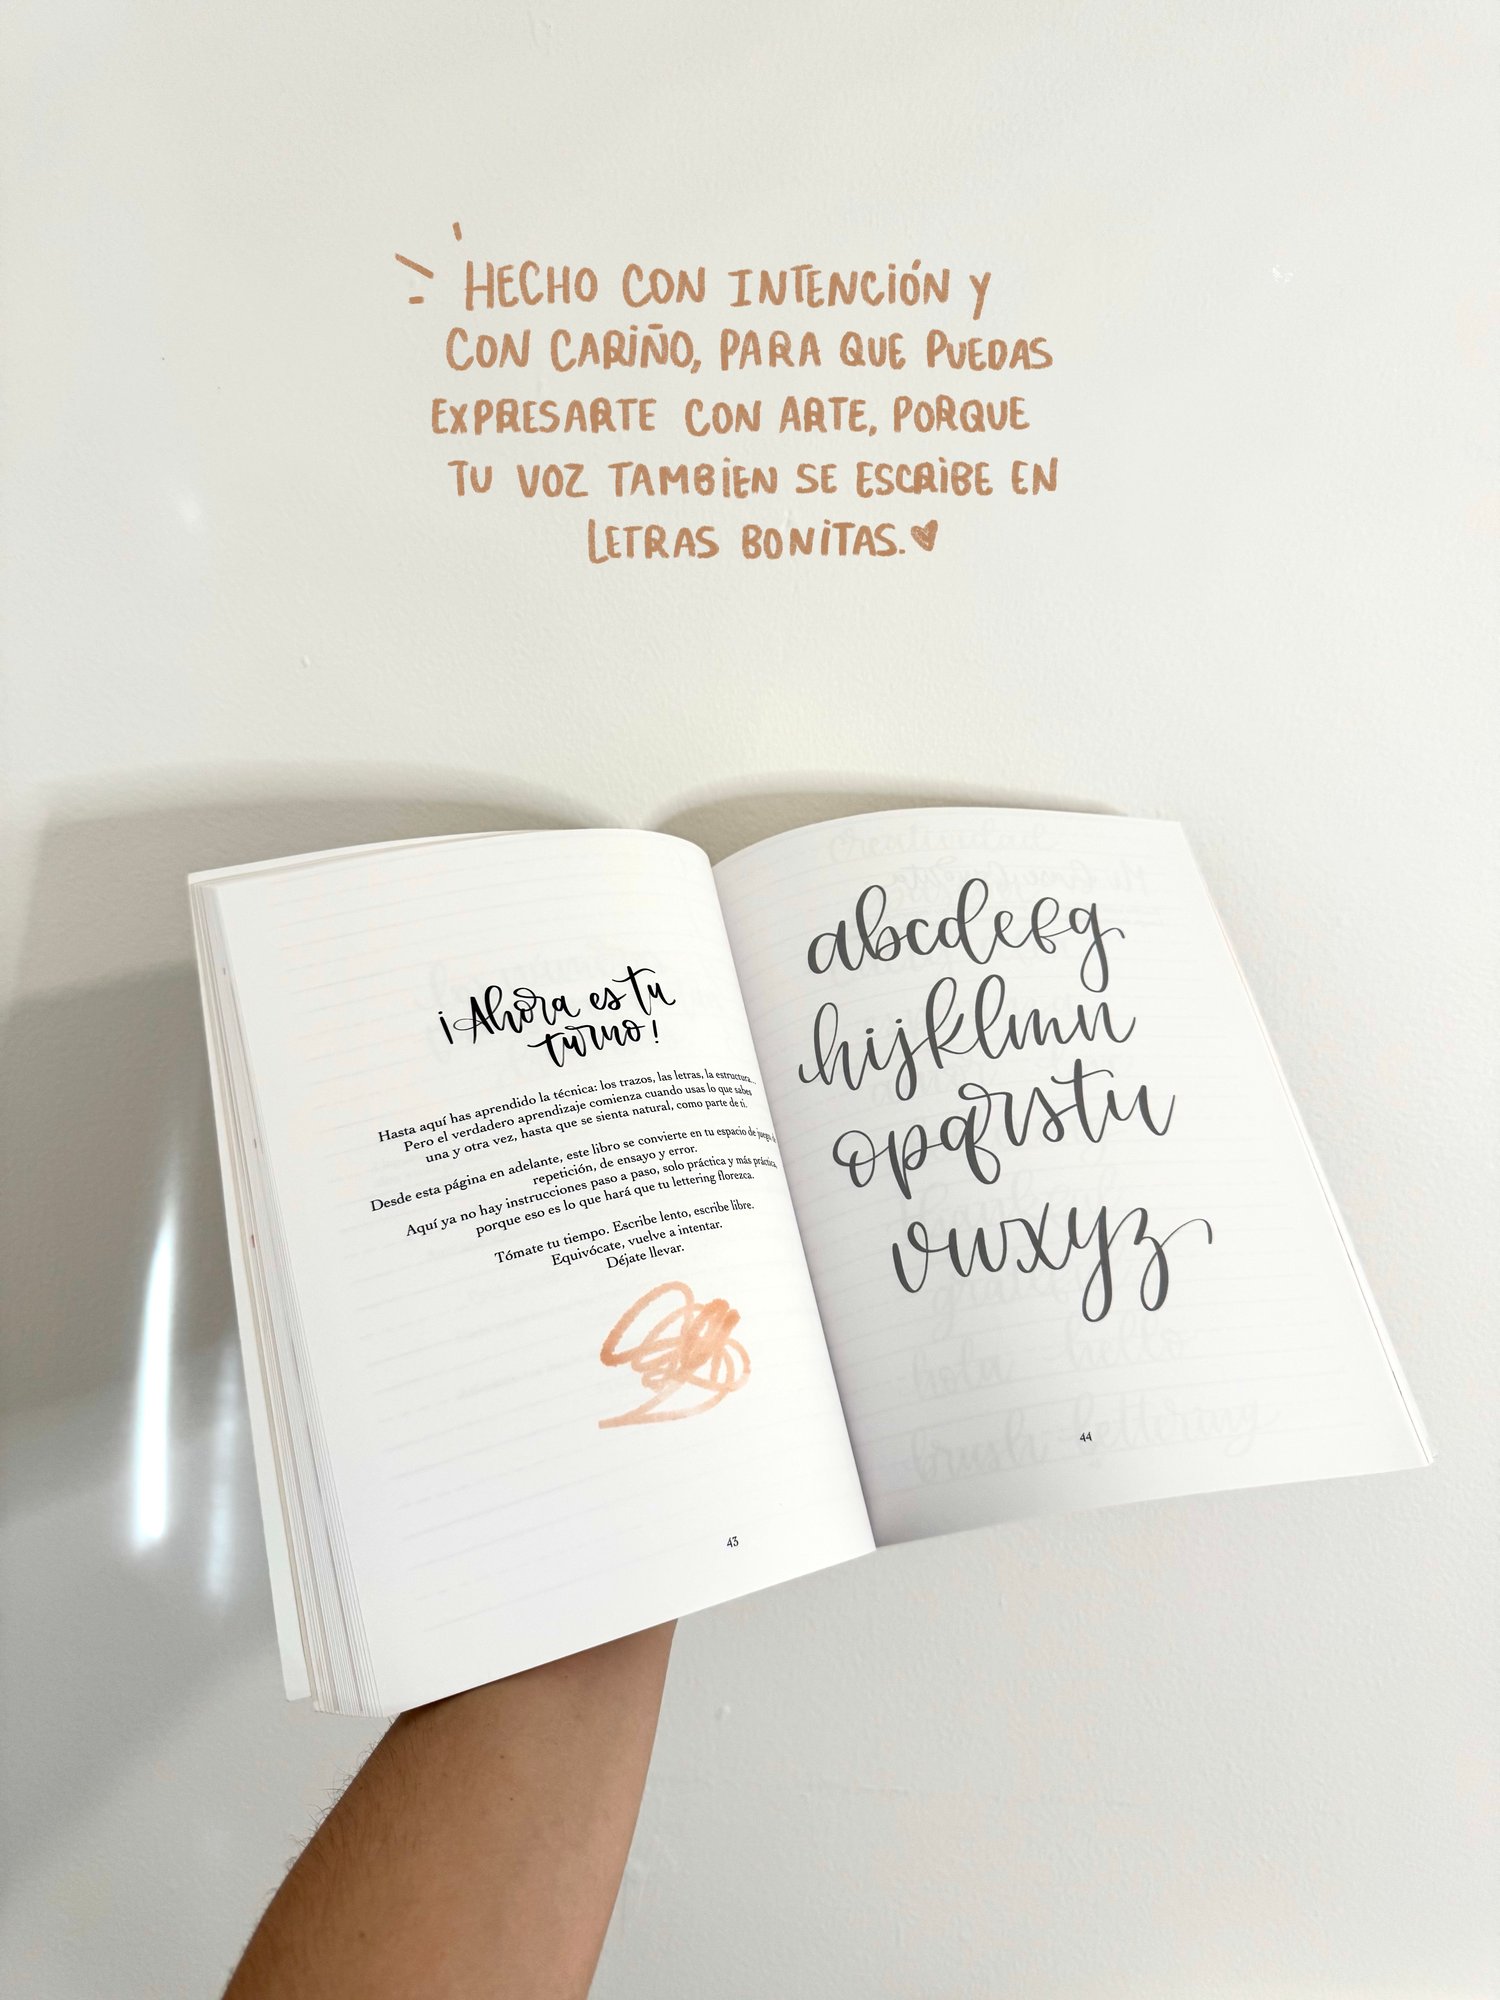 HECHO CON INTENCIÓN Y
CON CARIÑO, PARA QUE PUEDAS
EXPRESARTE CON ARTE, PORQUE
TU VOZ TAMBIEN SE ESCRIBE EN
LETRAS BONITAS.
¡Ahora es tu
turno!
Hasta aquí has aprendido la técnica: los trazos, las letras, la estructura...
Pero el verdadero aprendizaje comienza cuando usas lo que sabes
una y otra vez, hasta que se sienta natural, como parte de ti.
Desde esta página en adelante, este libro se convierte en tu espacio de juego, de
repetición, de ensayo y error.
Aquí ya no hay instrucciones paso a paso, solo práctica y más práctica,
porque eso es lo que hará que tu lettering florezca.
Tómate tu tiempo. Escribe lento, escribe libre.
Equivócate, vuelve a intentar.
Déjate llevar.
43
creatividad
abcdefg
hijklmn
opqrstu
vwxyz
hola hello
brush lettering
44